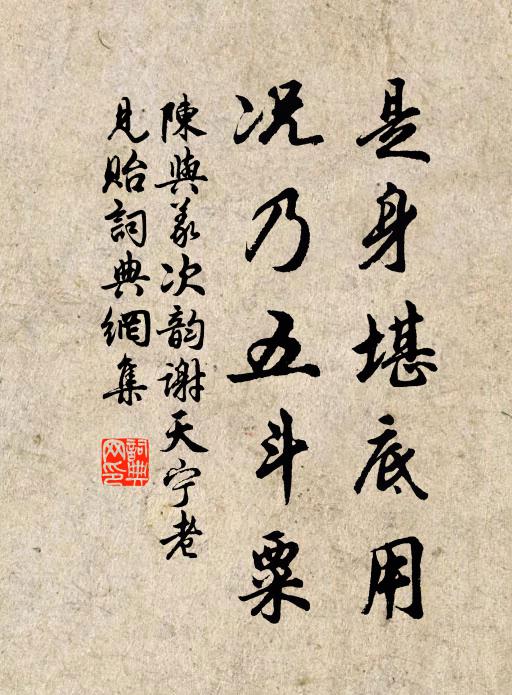 是身堪底用
况乃五斗粟
陳與義次韵谢天宁老
見貽詞典網集
詞典
网印